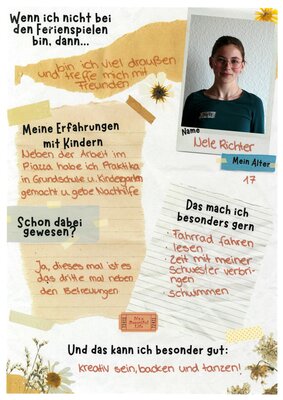 Wenn ich nicht bei
den Ferienspielen
bin, dann...
bin ich viel draußen
und treffe mich mit
Freunden
Name
Nele Richter
Mein Alter
17
Meine Erfahrungen
mit Kindern
Neben der Arbeit im
Piazza habe ich Praktika
in Grundschule u. Kindergarten
gemacht u. gebe Nachhilfe
Schon dabei
gewesen?
Ja, dieses mal ist es
das dritte mal neben
den Betreuungen
Das mach ich
besonders gern
· Fahrrad fahren
· lesen
· Zeit mit meiner
Schwester verbrin-
gen
· schwimmen
Und das kann ich besonder gut:
kreativ sein, backen und tanzen!